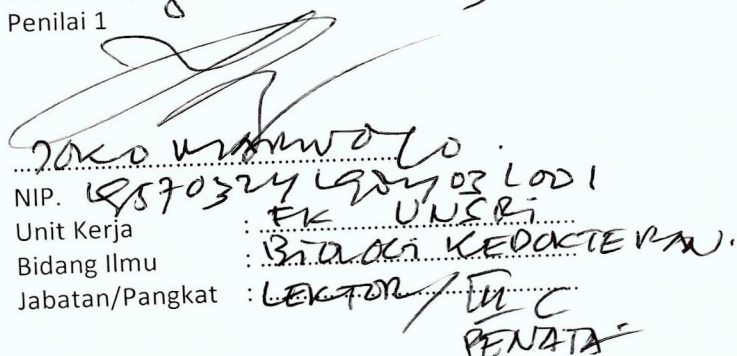 Penilai 1
JOKO MARWOTO.
NIP. 195703241984031001
Unit Kerja : FK UNSRI
Bidang Ilmu : BIOLOGI KEDOKTERAN.
Jabatan/Pangkat : LEKTOR / III C
PENATA